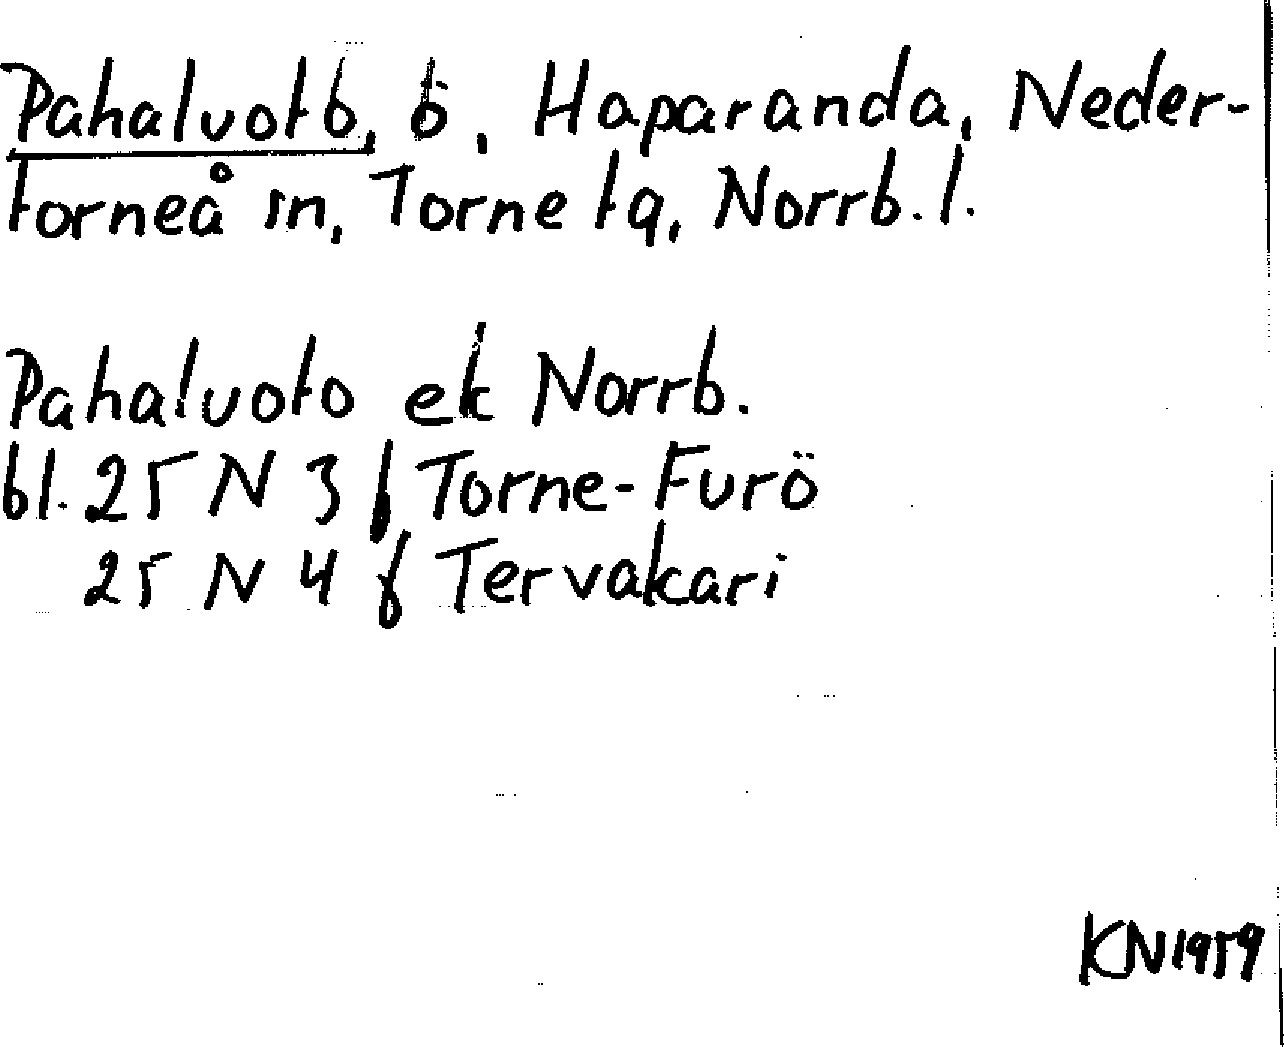 Pahaluoto, ö, Haparanda, Neder-
torneå sn, Torne tg, Norrb. l.
Pahaluoto ek Norrb.
bl. 25 N 3 f Torne-Furö
25 N 4 f Tervakari
KN1959